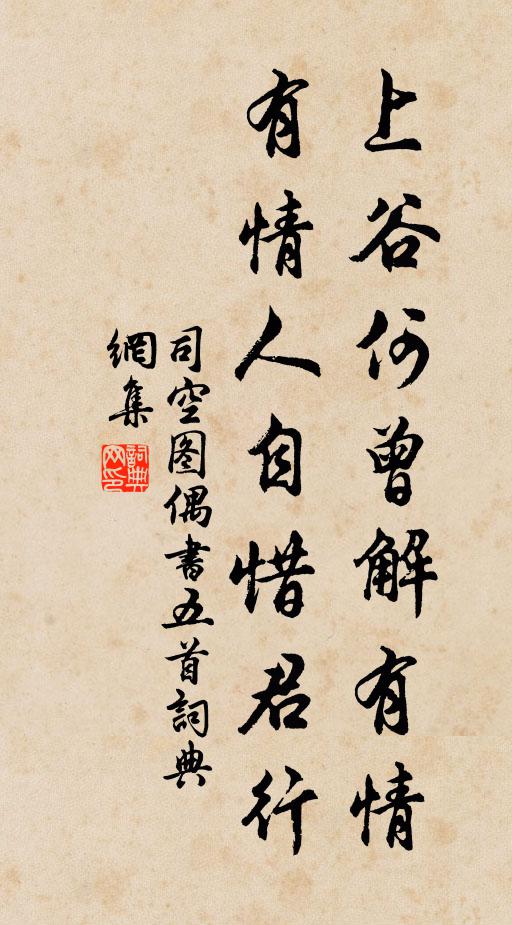 上谷何曾解有情
有情人自惜君行
司空图偶書五首詞典
網集
詞典
网印